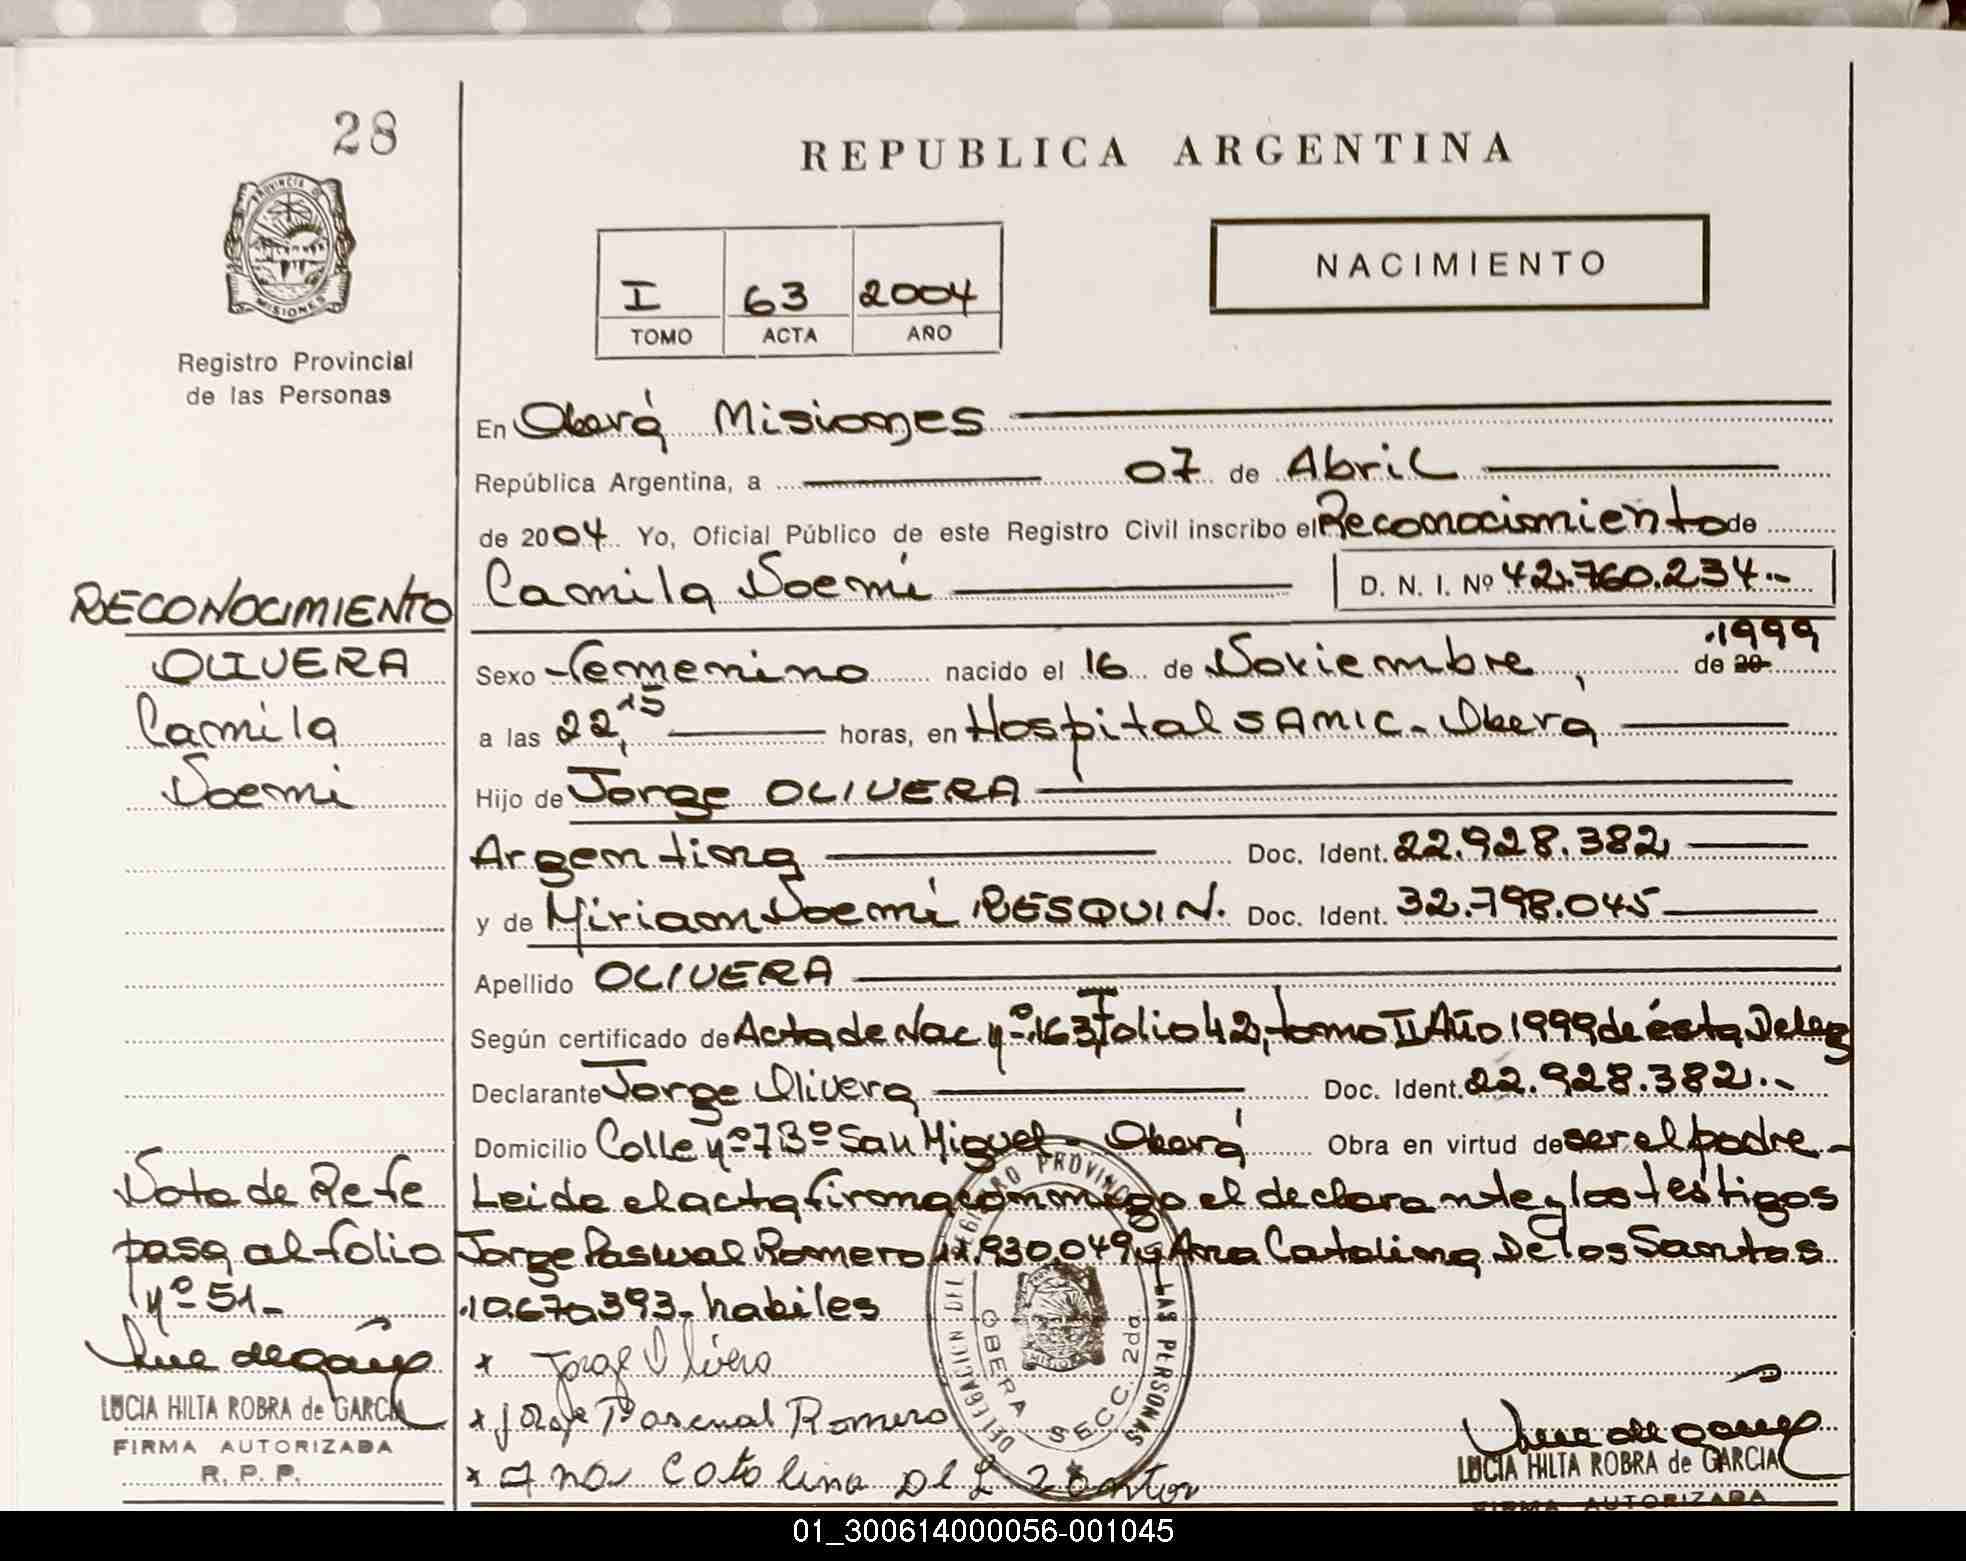 28
REPUBLICA ARGENTINA
PROVINCIA D
MISIONES
Registro Provincial
de las Personas
NACIMIENTO
I 63 2004
TOMO ACTA AÑO
En Oberá Misiones
República Argentina, a 07 de Abril
de 2004 Yo, Oficial Público de este Registro Civil inscribo el Reconocimiento de
Camila Noemi D. N. I. Nº 42.760.234.-
RECONOCIMIENTO
OLIVERA
Camila
Noemi
Sexo femenino nacido el 16 de Noviembre, de 20 1999
a las 22,15 horas, en Hospital SAMIC - Oberá
Hijo de Jorge OLIVERA
Argentina Doc. Ident. 22.928.382
y de Miriam Noemi RESQUIN. Doc. Ident. 32.798.045
Apellido OLIVERA
Según certificado de Acta de Nac nº 163, Folio 42, tomo II Año 1999 de ésta Deleg
Declarante Jorge Olivera Doc. Ident. 22.928.382.-
Domicilio Calle nº 7 Bº San Miguel - Oberá Obra en virtud de ser el padre -
Leida el acta firma conmigo el declarante y los testigos
Jorge Pascual Romero 11.930.049 y Ana Catalina De los Santos
10.670.393- habiles
Nota de Refe
pasa al folio
nº 51-
x Jorge Olivera
x Jorge Pascual Romero
x Ana Catalina
DELEGACION DEL REGISTRO PROVINC LAS PERSONAS
OBERA SECC. 2da.
MISIONES
LUCIA HILTA ROBRA de GARCIA
FIRMA AUTORIZADA
R. P. P.
LUCIA HILTA ROBRA de GARCIA
FIRMA AUTORIZADA
01_300614000056-001045